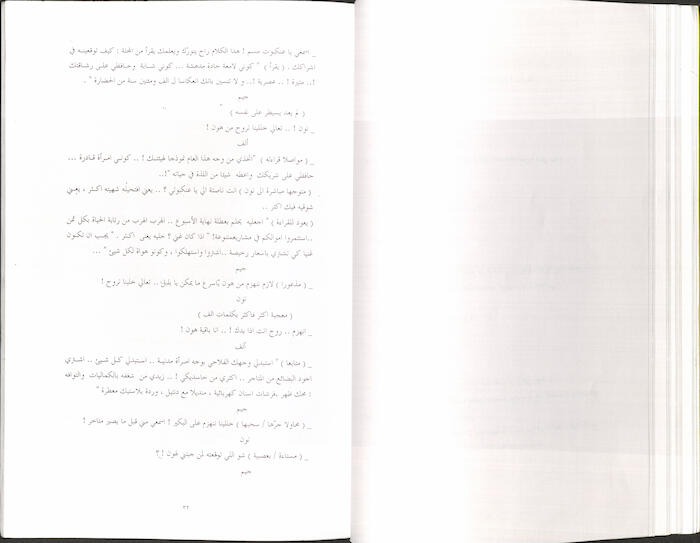 _ اسمعي يا عنكبوت مسم ! هذا الكلام راح ينورك ويعلمك يقرأ من المجلة : كيف توقعينه في
اشراكك . ( يقرأ ) " كوني لامعة حادة مدهشة ... كوني شابة وحافظي على رشاقتك
!.. مثيرة ! .. عصرية !.. و لا تنسين بانك انعكاسا ل الف ومئتين سنة من الحضارة " .
جيم
( لم يعد يسيطر على نفسه )
_ نون ! .. تعالي خلينا نروح من هون !
ألف
_ ( مواصلا قراءته ) "اتخذي من وجه هذا العام نموذجا لهيئتك ! .. كوني امرأة قادرة ...
حافظي على شريكك واعطه شيئا من اللذة في حياته "!..
( متوجها مباشرة الى نون ) انت ناصتة الي يا عنكبوتي ؟ .. يعني افتحيله شهيته اكثر ، يعني
شوقيه فيك اكثر ..
( يعود للقراءة ) " اجعليه يحلم بعطلة نهاية الأسبوع .. الهرب الهرب من رتابة الحياة بكل ثمن
..استثمروا اموالكم في مشاريع متنوعة! " اذا كان غني ؟ خليه يغنى اكثر . " يجب ان تكون
غنيا كي تشتري باسعار رخيصة ..اشتروا واستهلكوا ، وكونو هواة لكل شيئ " ...
جيم
_ ( مذعورا ) لازم ننهزم من هون بأسرع ما يمكن يا بلبل .. تعالي خلينا نروح !
نون
( معجبة اكثر فاكثر بكلمات الف )
_ انهزم .. روح انت اذا بدك ! .. انا باقية هون !
ألف
_ ( متابعا ) " استبدلي وجهك الفلاحي بوجه امرأة مدنية .. استبدلي كل شيئ .. اشتري
اجود البضائع من المتاجر .. اكثري من حاسديكي ! .. زيدي من شغفه بالكماليات والتوافه
: محك ظهر ،فرشات اسنان كهربائية ، منديلا مع دنتيل ، وردة بلاستيك معطرة "
جيم
_ ( محاولا جرّها / سحبها ) خلينا ننهزم على البكير ! اسمعي مني قبل ما يصير متاخر !
نون
_ ( مستاءة / بعصبية ) شو اللي توقعته لمن جبتني لهون !.؟
جيم
٣٢